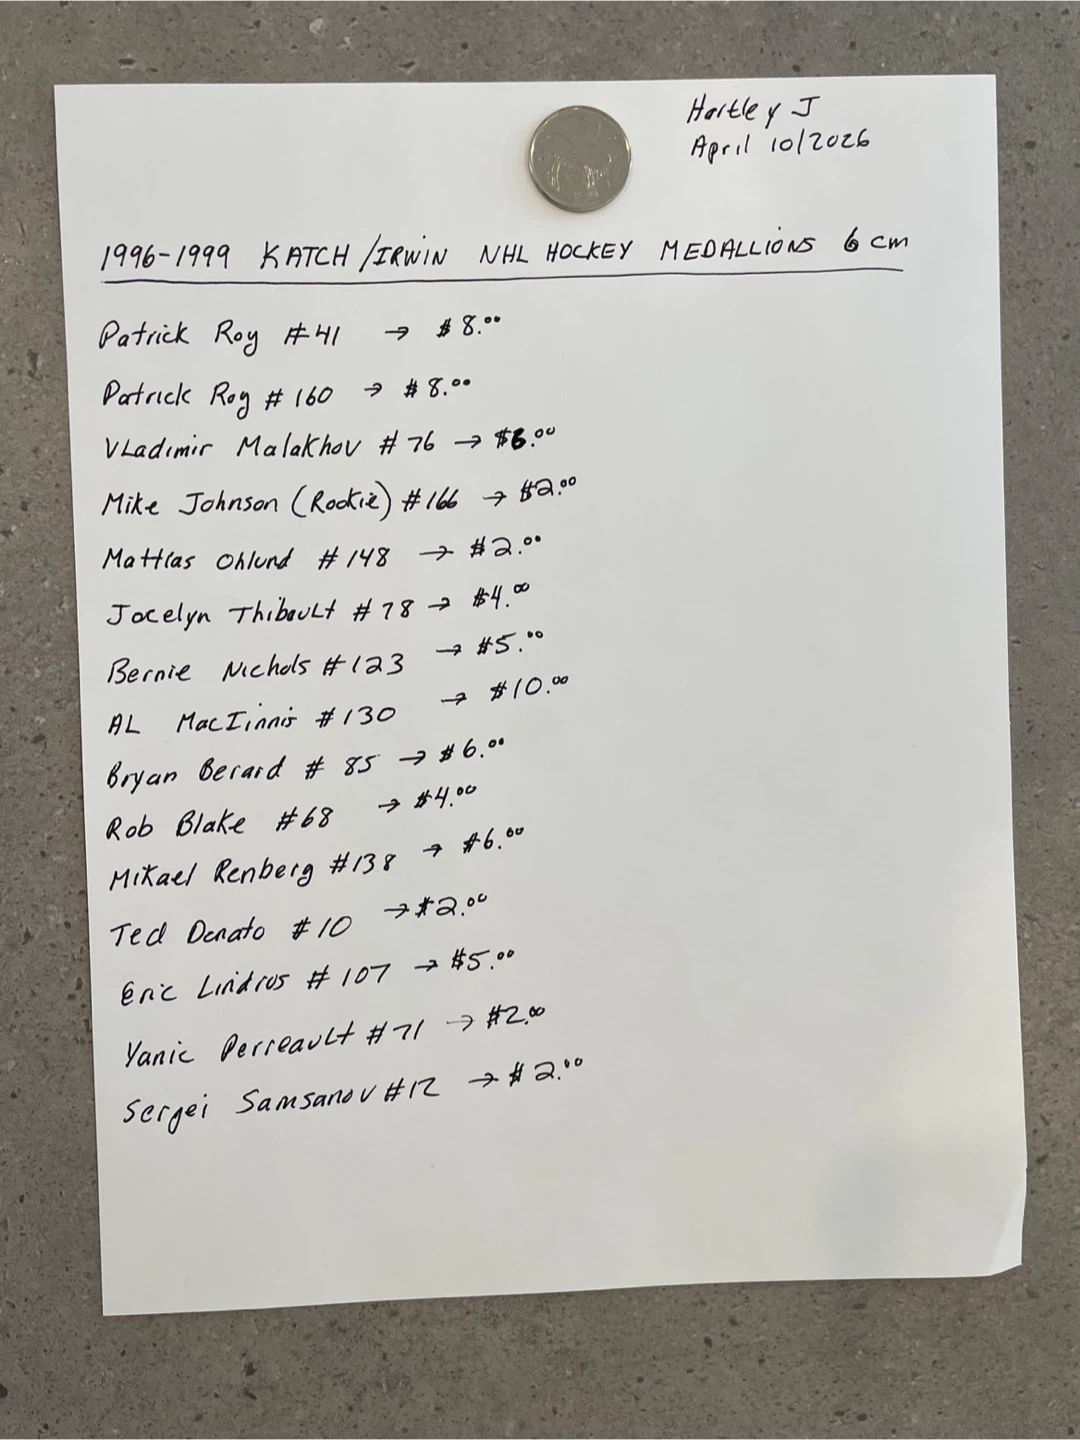 Hartley J
April 10/2026
1996-1999 KATCH/IRWIN NHL HOCKEY MEDALLIONS 6 cm
Patrick Roy #41 → $8.00
Patrick Roy #160 → $8.00
Vladimir Malakhov #76 → $6.00
Mike Johnson (Rookie) #166 → $2.00
Mattias Ohlund #148 → $2.00
Jocelyn Thibault #78 → $4.00
Bernie Nichols #123 → $5.00
AL MacIinnis #130 → $10.00
Bryan Berard # 85 → $6.00
Rob Blake #68 → $4.00
Mikael Renberg #138 → $6.00
Ted Donato #10 → $2.00
Eric Lindros #107 → $5.00
Yanic Perreault #71 → $2.00
Sergei Samsanov #12 → $2.00